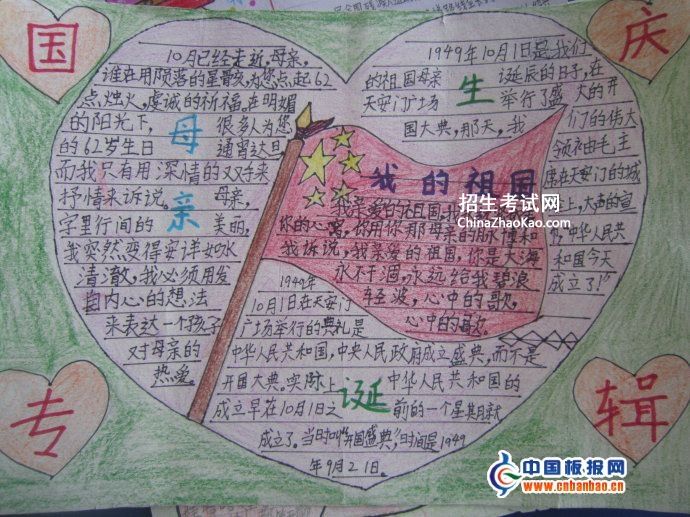 国
庆
专
辑
10月已经走近,母亲,
谁在用陨落的星骸,为您点起62
点烛火,虔诚的祈福。在明媚
的阳光下, 很多人为您
的62岁生日 通宵达旦
而我只有用深情的双手来
抒情来诉说。 母亲,
字里行间的 美丽,
我突然变得安详如水
清澈,我必须用发
自内心的想法
来表达一个孩子
对母亲的
热爱。
母
亲
1949年10月1日是我们
的祖国母亲 诞辰的日子,在
天安门广场 举行了盛 大的开
国大典,那天,我 们的伟大
领袖毛主
席在天安门的城
上,大声的宣
中华人民共
和国今天
成立了!"
生
我的祖国
我亲爱的祖国,
你的心窝,你用你那母亲的脉搏和
我诉说,我亲爱的祖国,你是大海
永不干涸,永远给我碧浪
轻波,心中的歌,
心中的歌
1949年
10月1日在天安门
广场举行的典礼是
中华人民共和国,中央人民政府成立盛典,而不是
开国大典。实际上 中华人民共和国的
成立早在10月1日之 前的一个星期就
成立了。当时叫"开国盛典,"时间是1949
年9月21日。
诞
招生考试网
ChinaZhaoKao.com
中国板报网
www.cnbanbao.cn